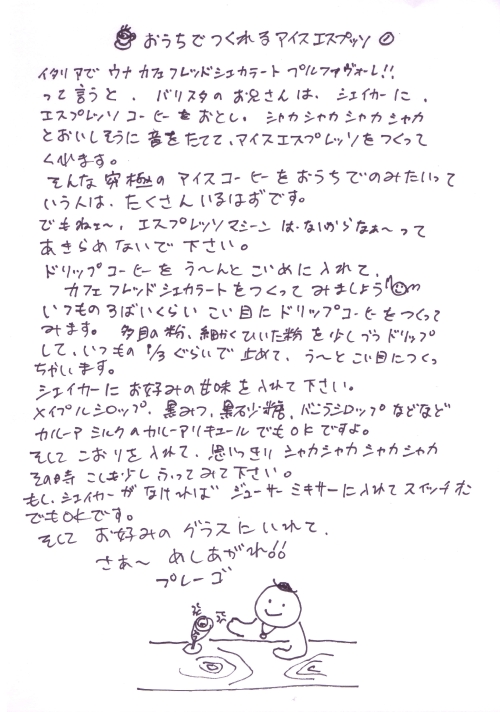 おうちでつくれるアイスエスプレッソ①
イタリアで ウナ カフェフレッドシェカラート プルファヴォーレ!!
って言うと、バリスタのお兄さんは、シェイカーに、
エスプレッソコーヒーをおとし、シャカシャカシャカシャカ
とおいしそうに音をたてて、アイスエスプレッソをつくって
くれます。
そんな究極のアイスコーヒーをおうちでのみたいって
いう人は、たくさんいるはずです。
でもねェ〜、エスプレッソマシーンはないからなぁ〜って
あきらめないで下さい。
ドリップコーヒーをう〜んとこいめに入れて、
カフェフレッドシェカラートをつくってみましよう!
いつもの3ばいくらい こい目にドリップコーヒーをつくって
みます。 多目の粉、細かくひいた粉を少しづつドリップ
して、いつもの1/3ぐらいで止めて、う〜とこい目につくっ
ちゃいます。
シェイカーにお好みの甘味を入れて下さい。
メイプルシロップ、黒みつ、黒砂糖、バニラシロップなどなど
カルーアミルクのカルーアリキュールでもOKですよ。
そしてこおりを入れて、思いっきりシャカシャカシャカシャカ
その時こしも少しふってみて下さい。
もし、シェイカーがなければ ジューサーミキサーに入れてスイッチオン
でもOKです。
そしてお好みのグラスにいれて、
さあ〜 めしあがれ!!
プレーゴ